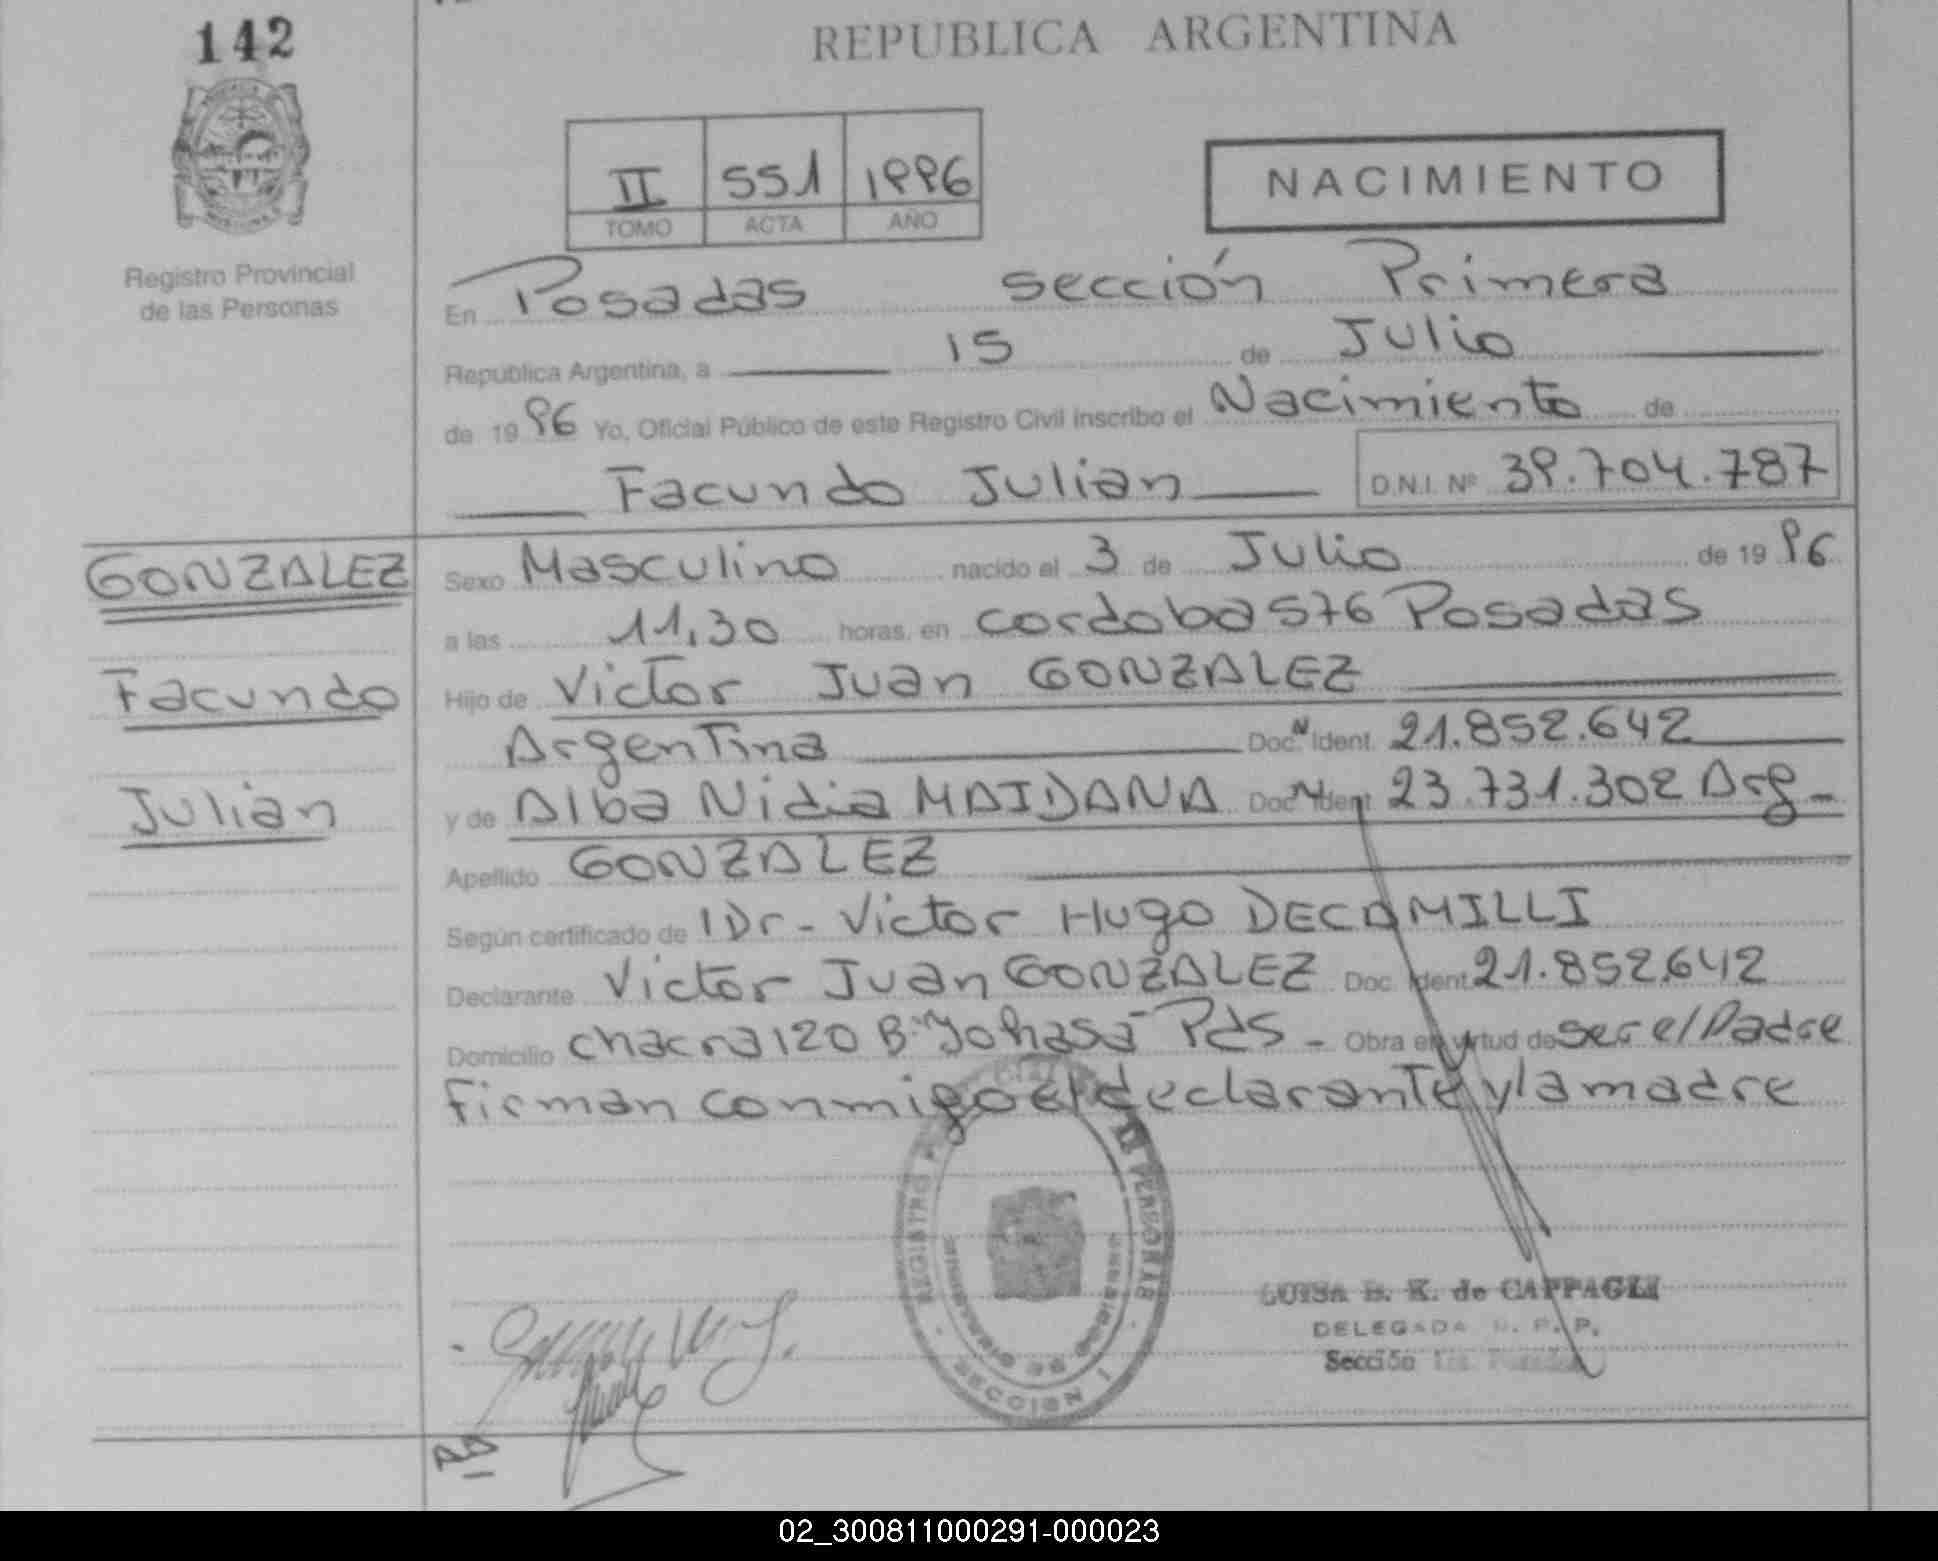 142
REPUBLICA ARGENTINA
II 551 1996
TOMO ACTA AÑO
NACIMIENTO
Registro Provincial
de las Personas
En Posadas sección Primera
República Argentina, a 15 de Julio
de 1996 Yo, Oficial Público de este Registro Civil inscribo el Nacimiento de
Facundo Julian D.N.I. Nº 39.704.787
GONZALEZ
Facundo
Julian
Sexo Masculino nacido el 3 de Julio de 1996
a las 11,30 horas, en cordoba 576 Posadas
Hijo de Victor Juan GONZALEZ
Argentina Doc. N Ident. 21.852.642
y de Alba Nidia MAIDANA Doc. N Ident 23.731.302 Arg-
Apellido GONZALEZ
Según certificado de Dr- Victor Hugo DECAMILLI
Declarante Victor Juan GONZALEZ Doc. Ident 21.852.642
Domicilio chacra 120 B: Yohasa Pds - Obra en virtud de ser el Padre
Firman conmigo el declarante y la madre
REGISTRO PERSONAS
SECCION I
de CAPPAGLI
DELEGADA R. P. P.
Sección
02_300811000291-000023